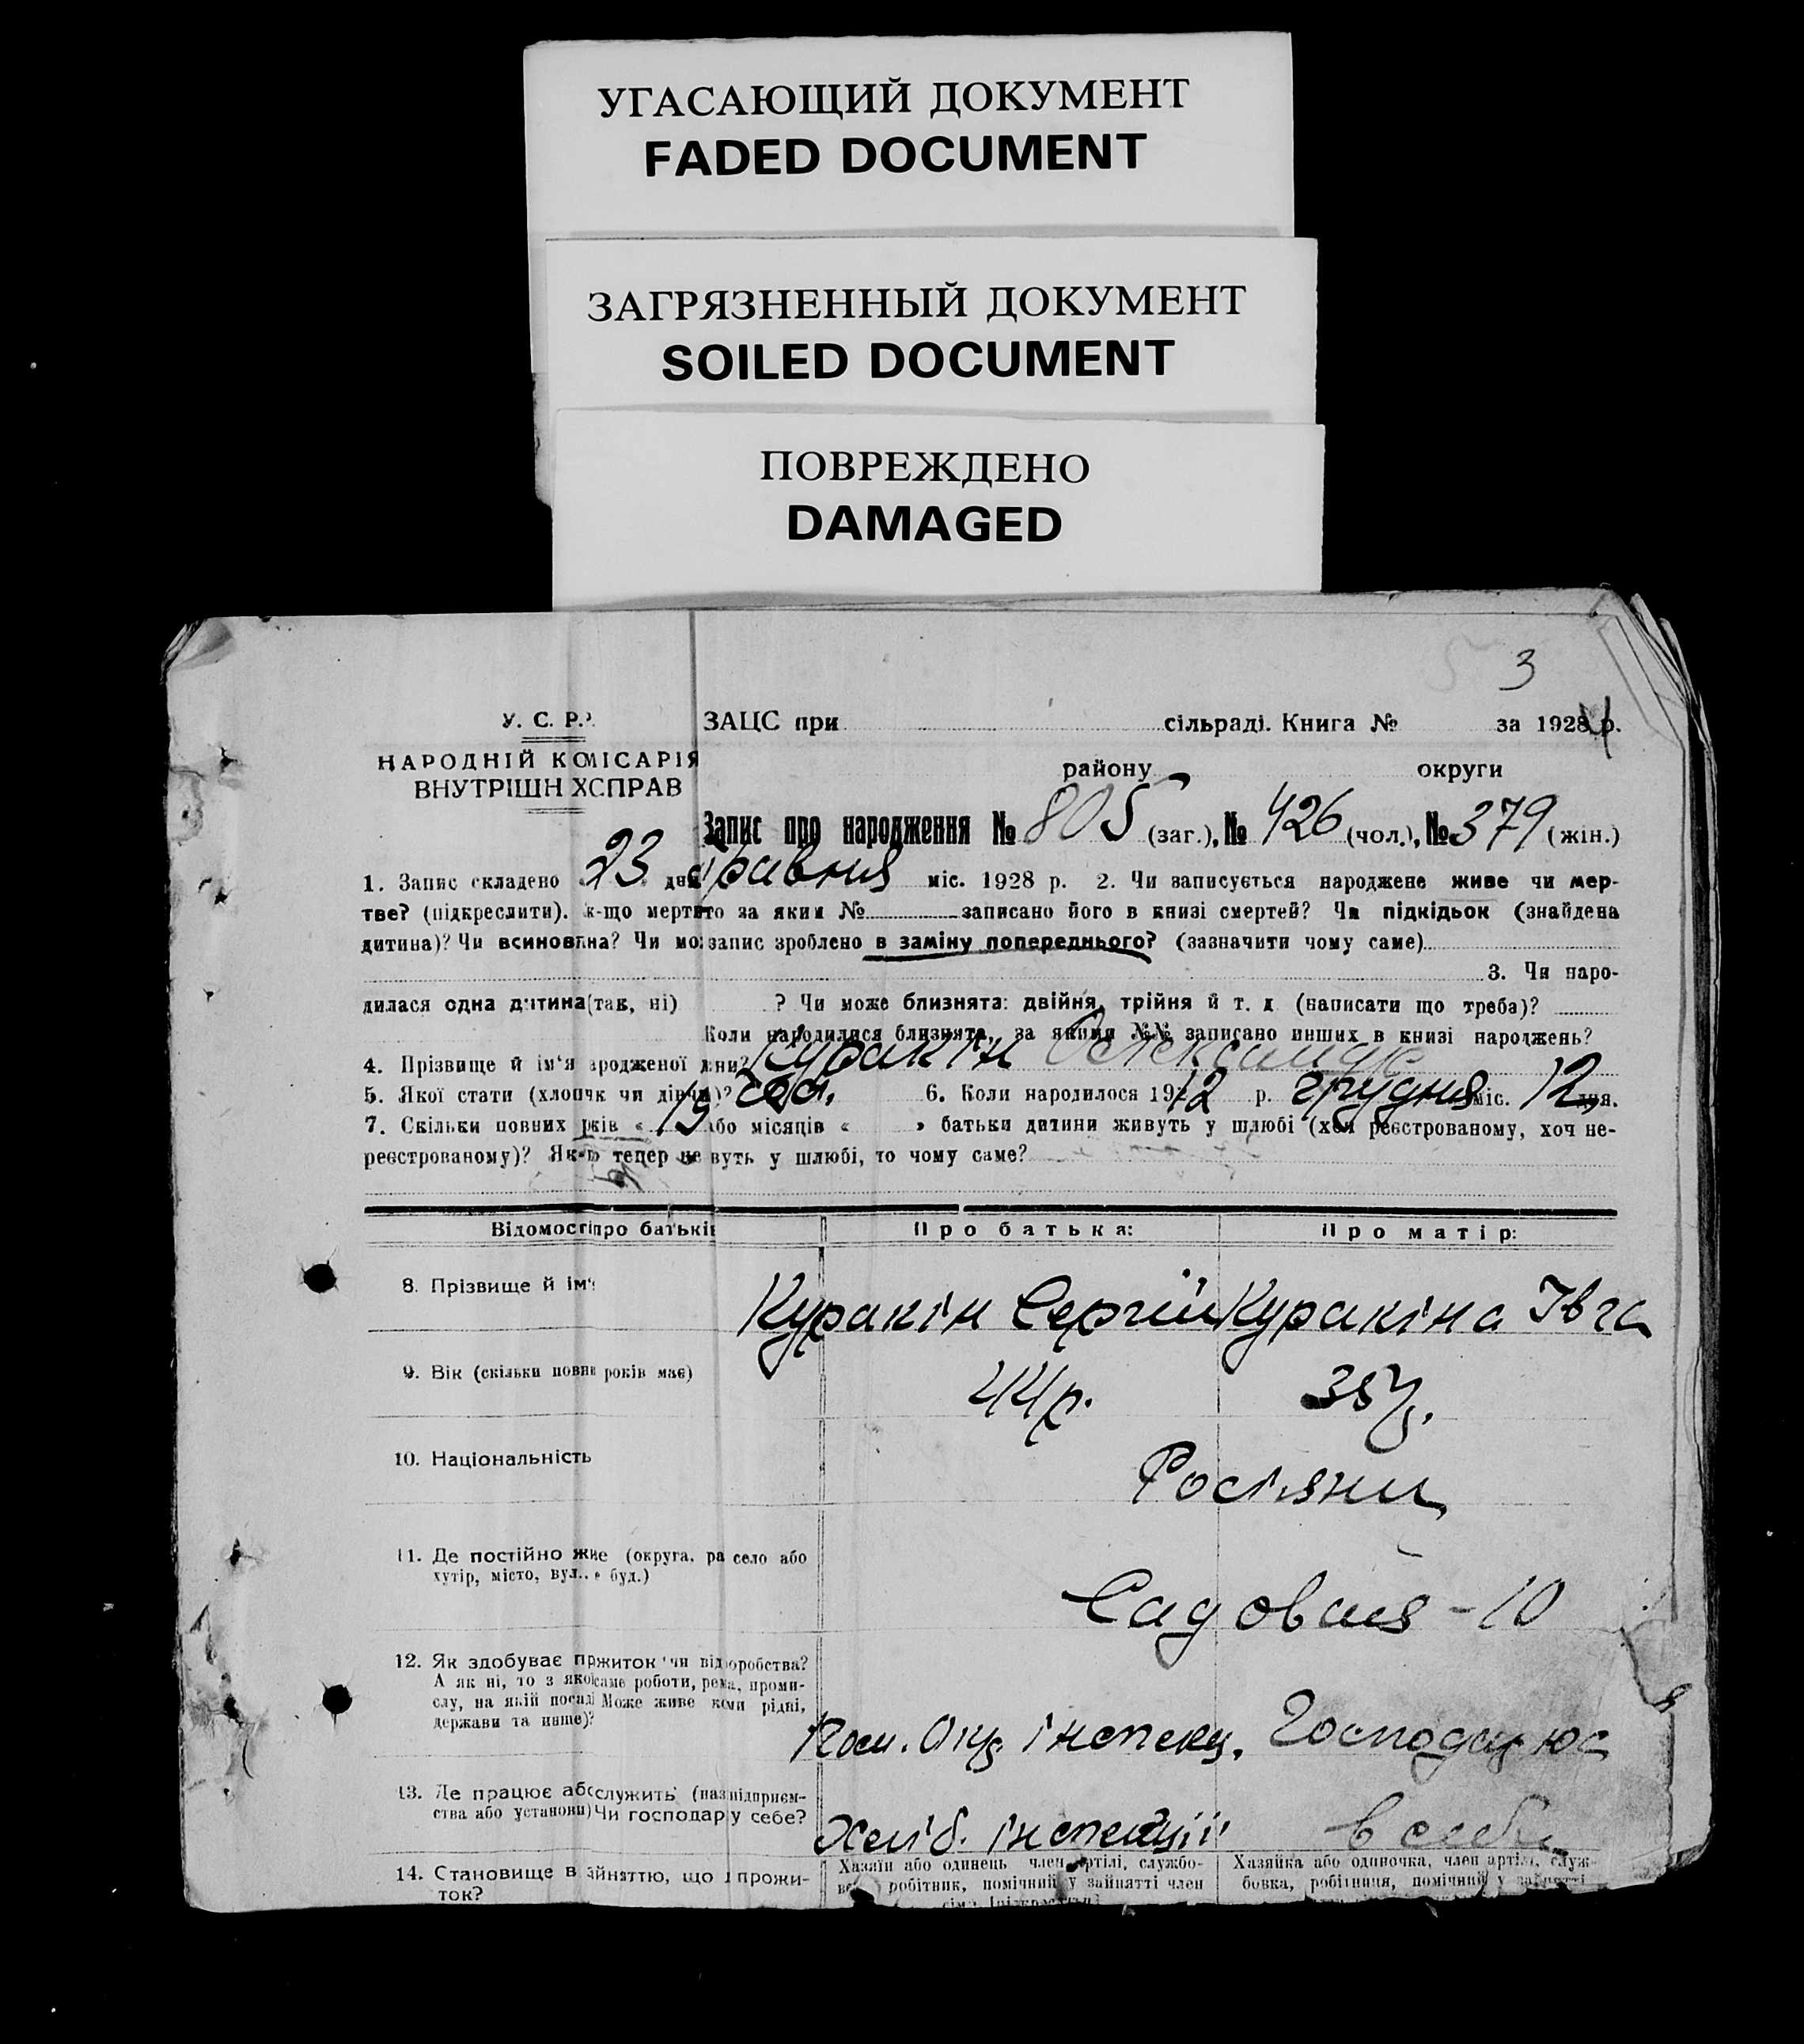 УГАСАЮЩИЙ ДОКУМЕНТ
FADED DOCUMENT
ЗАГРЯЗНЕННЫЙ ДОКУМЕНТ
SOILED DOCUMENT
ПОВРЕЖДЕНО
DAMAGED
3
У. С. Р.Р.
ЗАЦС при сільраді. Книга № за 1928 р.
НАРОДНІЙ КОМІСАРІЯ
ВНУТРІШН Х СПРАВ
району округи
Запис про народження № 805 (заг.), № 426 (чол.), № 379 (жін.)
1. Запис складено 23 дня травня міс. 1928 р. 2. Чи записується народжене живе чи мер-
тве? (підкреслити). к-що мертв то за яким № записано його в книзі смертей? Чи підкідьок (знайдена
дитина)? Чи всиновлна? Чи мо запис зроблено в заміну попереднього? (зазначити чому саме)
3. Чи наро-
дилася одна дитина (так, ні) ? Чи може близнята: двійня, трійня й т. д (написати що треба)?
Коли народилися близнята, за якими №№ записано инших в книзі народжень?
4. Прізвище й ім'я ародженої дини? Куракін Олександр
5. Якої стати (хлопчк чи дівчи)? 6. Коли народилося 1912 р. грудня міс. 12 дня.
7. Скільки повних рків « 19 або місяців « » батьки дитини живуть у шлюбі (хоч реєстрованому, хоч не-
реєстрованому)? Як-о тепер не вуть у шлюбі, то чому саме?
Відомості про батьків Про батька: Про матір:
8. Прізвище й ім'я Куракін Сергій Куракіна Івга
9. Вік (скільки повни років має) 44 р. 35 р.
10. Національність Росіяни
11. Де постійно жиє (округа, ра село або
хутір, місто, вул.. буд.)
Садовая - 10
12. Як здобуває пржиток чи від оробства?
А як ні, то з якої саме роботи, рема, проми-
слу, на якій посаді Може живе кош рідні,
держави та инше)?
Пом. Окр. інспекц. Господарює
13. Де працює або служить (наз підприєм-
ства або установи) Чи господар у себе?
Хліб. інспекції в себе
14. Становище в зайняттю, що прожи-
ток?
Хазяїн або одинець член артілі, службо-
ве робітник, помічний у зайнятті член
Хазяйка або одиночка, член артілі, служ-
бовка, робітниця, помічний у зайнятті